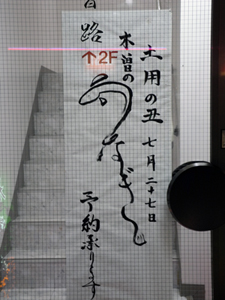 土用の丑 七月二十七日
木曽の
うなぎ
予約承ります
路
↑2F